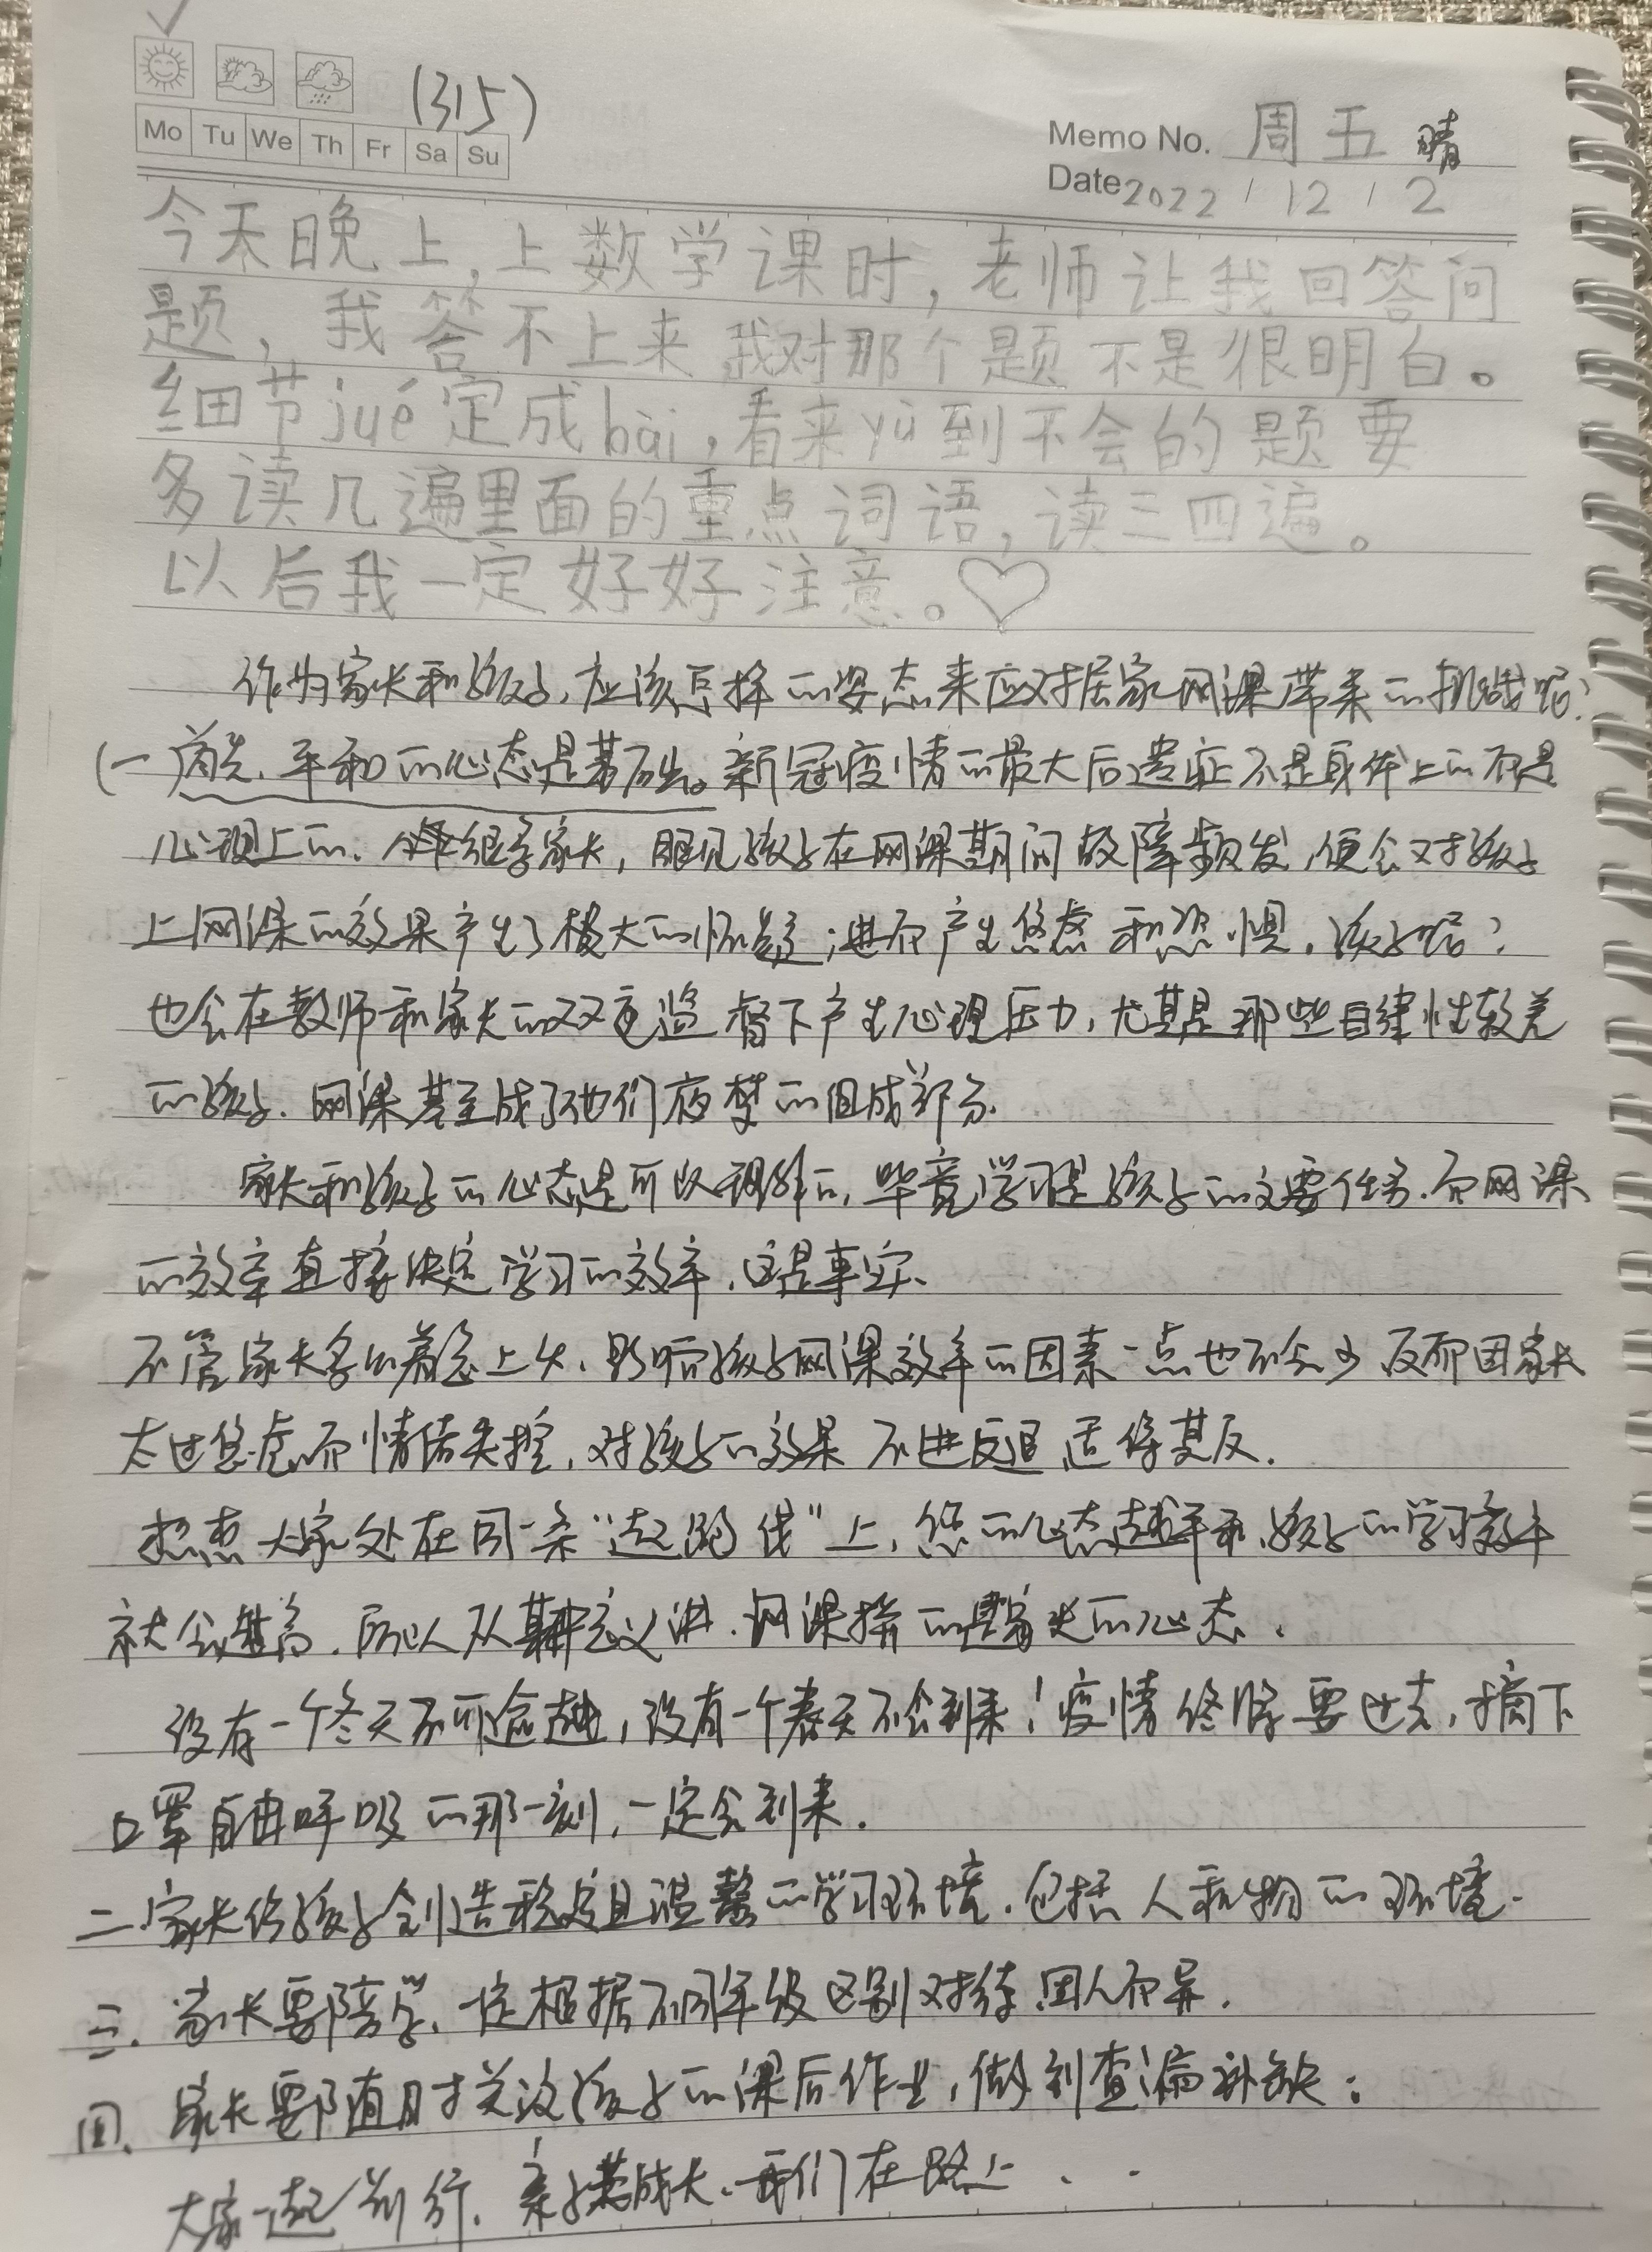 (315)
Mo Tu We Th Fr Sa Su
Memo No. 周五 晴
Date 2022 / 12 / 2
今天晚上,上数学课时,老师让我回答问
题,我答不上来,我对那个题不是很明白。
细节jué定成bài,看来yù到不会的题要
多读几遍里面的重点词语,读三四遍。
以后我一定好好注意。♡
作为家长和孩子,应该怎样的姿态来应对居家网课带来的挑战呢?
(一)首先,平和的心态是基础。新冠疫情的最大后遗症不是身体上的而是
心理上的。很多家长,眼见孩子在网课期间故障频发,便会对孩子
上网课的效果产生了极大的怀疑;进而产生焦虑和恐惧,孩子呢?
也会在教师和家长的双重监督下产生心理压力,尤其是那些自律性较差
的孩子,网课甚至成了他们夜梦的组成部分.
家长和孩子的心态是可以调解的,毕竟学习是孩子的主要任务,而网课
的效率直接决定学习的效率,这是事实、
不管家长多么着急上火,影响孩子网课效率的因素一点也不会少 反而因家长
太过焦虑而情绪失控,对孩子的效果 不进反退 适得其反.
想想大家处在同一条“起跑线”上,您的心态越平和,孩子的学习效率
就会越高,所以从某种意义讲,网课拼的是家长的心态.
没有一个冬天不可逾越,没有一个春天不会到来!疫情终将要过去,摘下
口罩自由呼吸的那一刻,一定会到来.
二、家长给孩子创造稳定且温馨的学习环境,包括人和物的环境.
三、家长要陪学,一定根据不同年级区别对待 因人而异.
四、家长要随时关注孩子的课后作业,做到查漏补缺;
大家一起前行,亲子共成长,我们在路上...